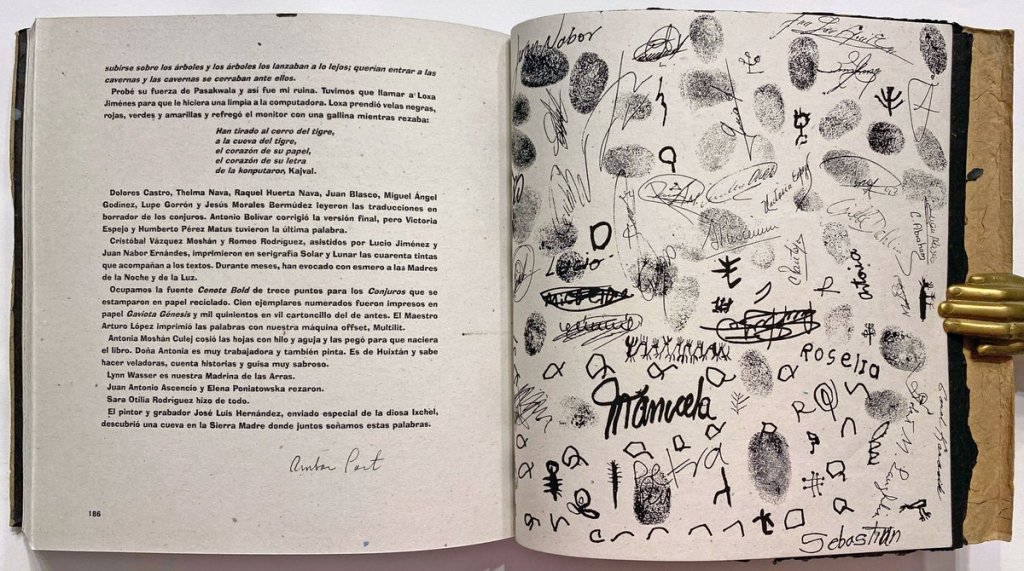 subirse sobre los árboles y los árboles los lanzaban a lo lejos; querían entrar a las
cavernas y las cavernas se cerraban ante ellos.
Probé su fuerza de Pasakwala y así fue mi ruina. Tuvimos que llamar a Loxa
Jiménes para que le hiciera una limpia a la computadora. Loxa prendió velas negras,
rojas, verdes y amarillas y refregó el monitor con una gallina mientras rezaba:
Han tirado al cerro del tigre,
a la cueva del tigre,
el corazón de su papel,
el corazón de su letra
de la konputaron, Kajval.
Dolores Castro, Thelma Nava, Raquel Huerta Nava, Juan Blasco, Miguel Ángel
Godínez, Lupe Gorrón y Jesús Morales Bermúdez leyeron las traducciones en
borrador de los conjuros. Antonio Bolívar corrigió la versión final, pero Victoria
Espejo y Humberto Pérez Matus tuvieron la última palabra.
Cristóbal Vázquez Moshán y Romeo Rodríguez, asistidos por Lucio Jiménez y
Juan Nabor Ernándes, imprimieron en serigrafía Solar y Lunar las cuarenta tintas
que acompañan a los textos. Durante meses, han evocado con esmero a las Madres
de la Noche y de la Luz.
Ocupamos la fuente Cenete Bold de trece puntos para los Conjuros que se
estamparon en papel reciclado. Cien ejemplares numerados fueron impresos en
papel Gaviota Génesis y mil quinientos en vil cartoncillo del de antes. El Maestro
Arturo López imprimió las palabras con nuestra máquina offset, Multilit.
Antonia Moshán Culej cosió las hojas con hilo y aguja y las pegó para que naciera
el libro. Doña Antonia es muy trabajadora y también pinta. Es de Huixtán y sabe
hacer veladoras, cuenta historias y guisa muy sabroso.
Lynn Wasser es nuestra Madrina de las Arras.
Juan Antonio Ascencio y Elena Poniatowska rezaron.
Sara Otilia Rodríguez hizo de todo.
El pintor y grabador José Luis Hernández, enviado especial de la diosa Ixchel,
descubrió una cueva en la Sierra Madre donde juntos soñamos estas palabras.
Ambar Past
186
Nabor
Lucio
antonia
Roselia
Manuela
Petra
Sebastian